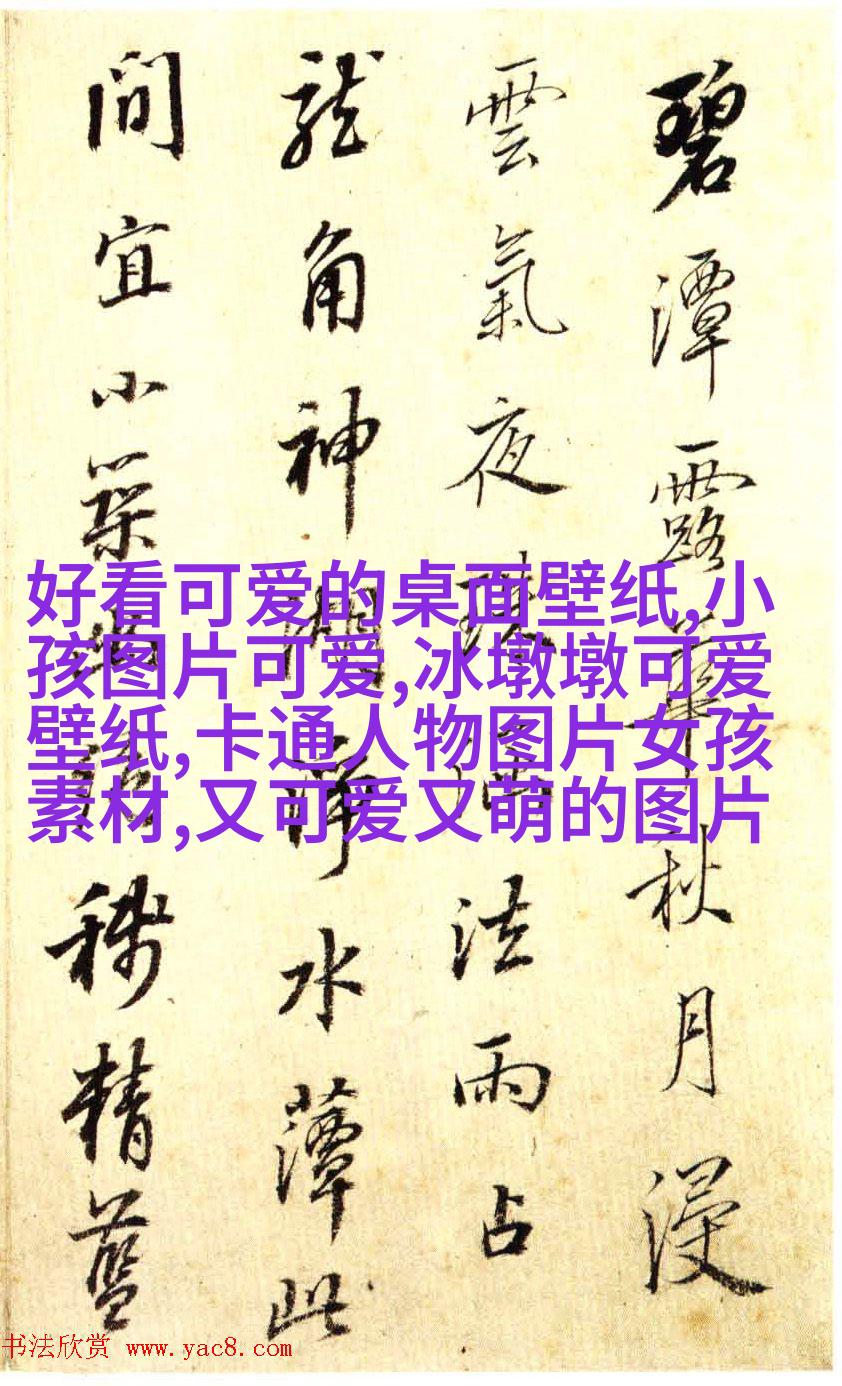 碧潭露華秋月浸
雲氣夜法雨占
龍角神湖淨水此
間宜小築精藍
好看可爱的桌面壁纸,小
孩图片可爱,冰墩墩可爱
壁纸,卡通人物图片女孩
素材,又可爱又萌的图片
书法欣赏 www.yac8.com